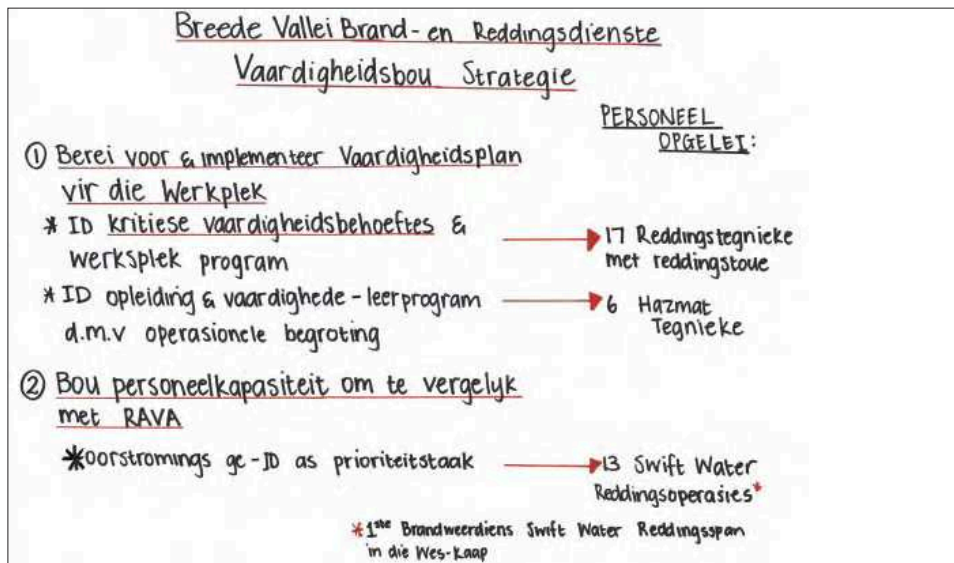 Breede Vallei Brand- en Reddingsdienste
Vaardigheidsbou Strategie
PERSONEEL
OPGELEI:
① Berei voor & implementeer Vaardigheidsplan
vir die Werkplek
* ID kritiese vaardigheidsbehoeftes &
werksplek program
17 Reddingstegnieke
met reddingstoue
* ID opleiding & vaardighede-leerprogram
d.m.v operasionele begroting
6 Hazmat
Tegnieke
② Bou personeelkapasiteit om te vergelyk
met RAVA
*oorstromings ge-ID as prioriteitstaak
13 Swift Water
Reddingsoperasies*
*1ste Brandweerdiens Swift Water Reddingsspan
in die Wes-Kaap